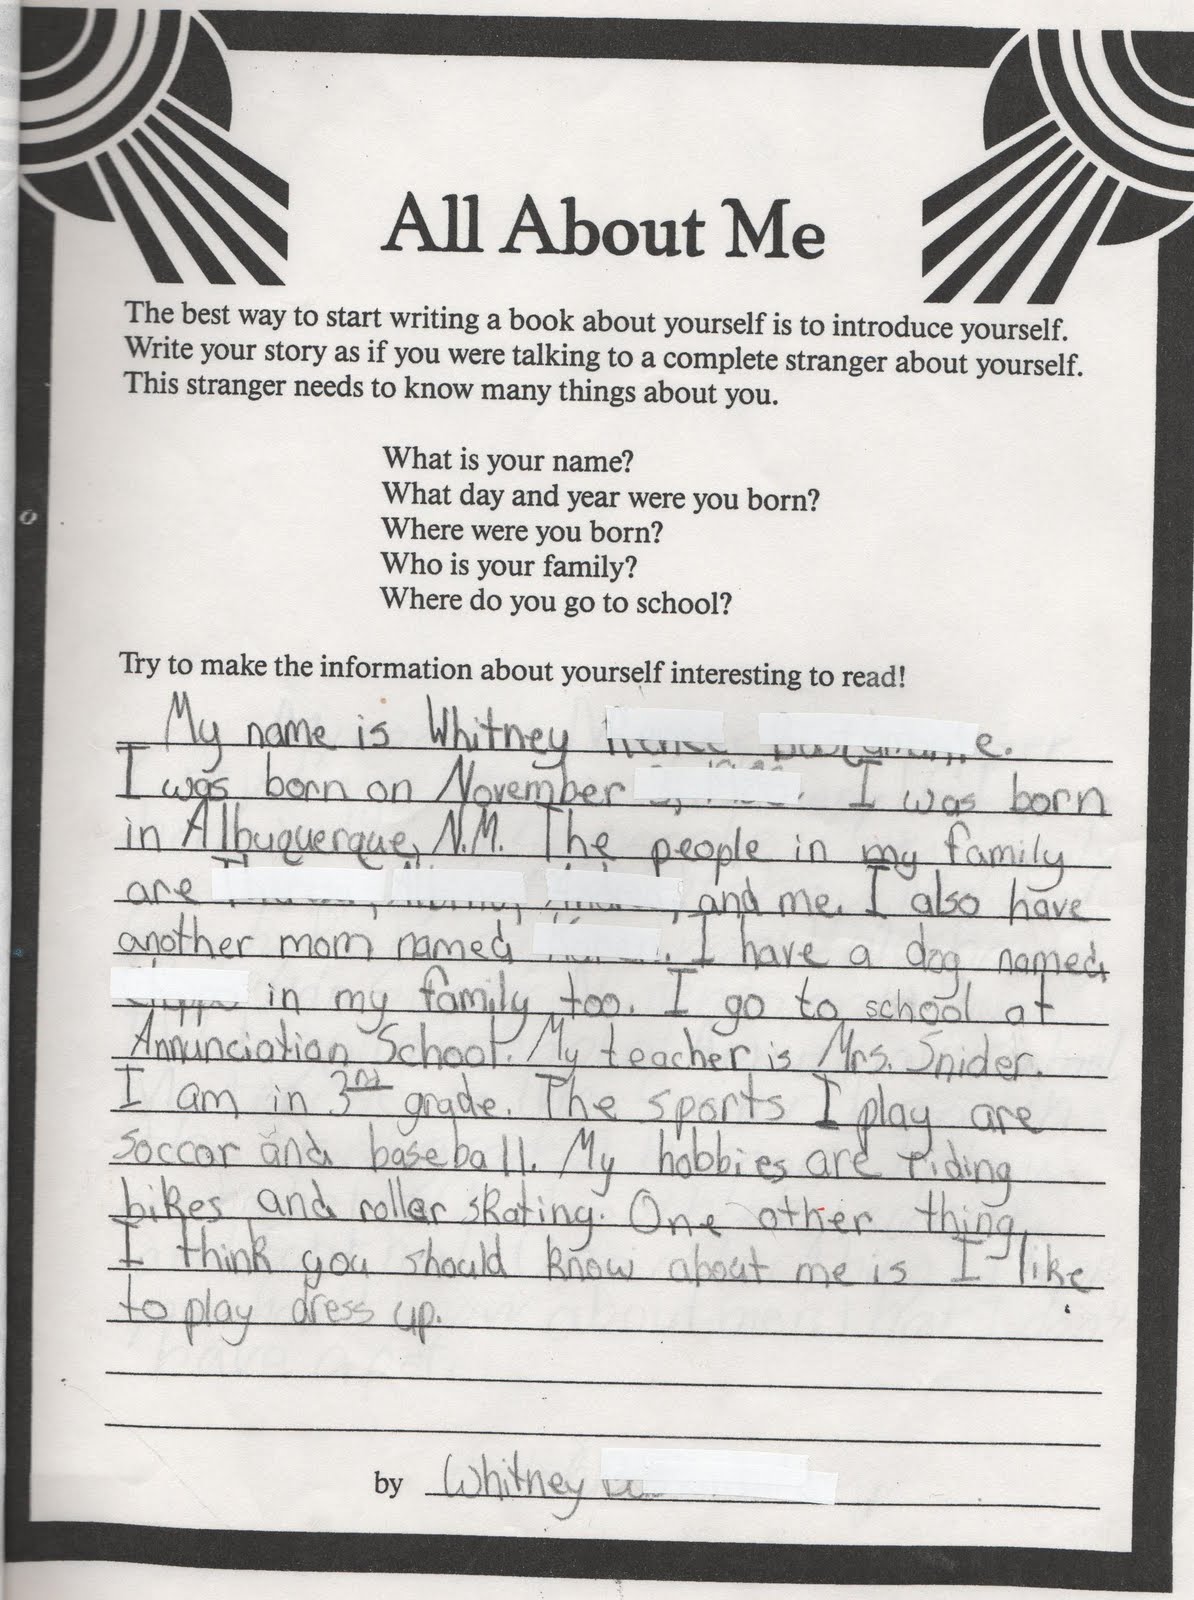 All About Me
The best way to start writing a book about yourself is to introduce yourself.
Write your story as if you were talking to a complete stranger about yourself.
This stranger needs to know many things about you.
What is your name?
What day and year were you born?
Where were you born?
Who is your family?
Where do you go to school?
Try to make the information about yourself interesting to read!
My name is Whitney
I was born on November I was born
in Albuquerque, N.M. The people in my family
are and me. I also have
another mom named I have a dog named
in my family too. I go to school at
Annunciation School. My teacher is Mrs. Snider.
I am in 3rd grade. The sports I play are
soccor and baseball. My hobbies are riding
bikes and roller skating. One other thing
I think you should know about me is I like
to play dress up.
by Whitney